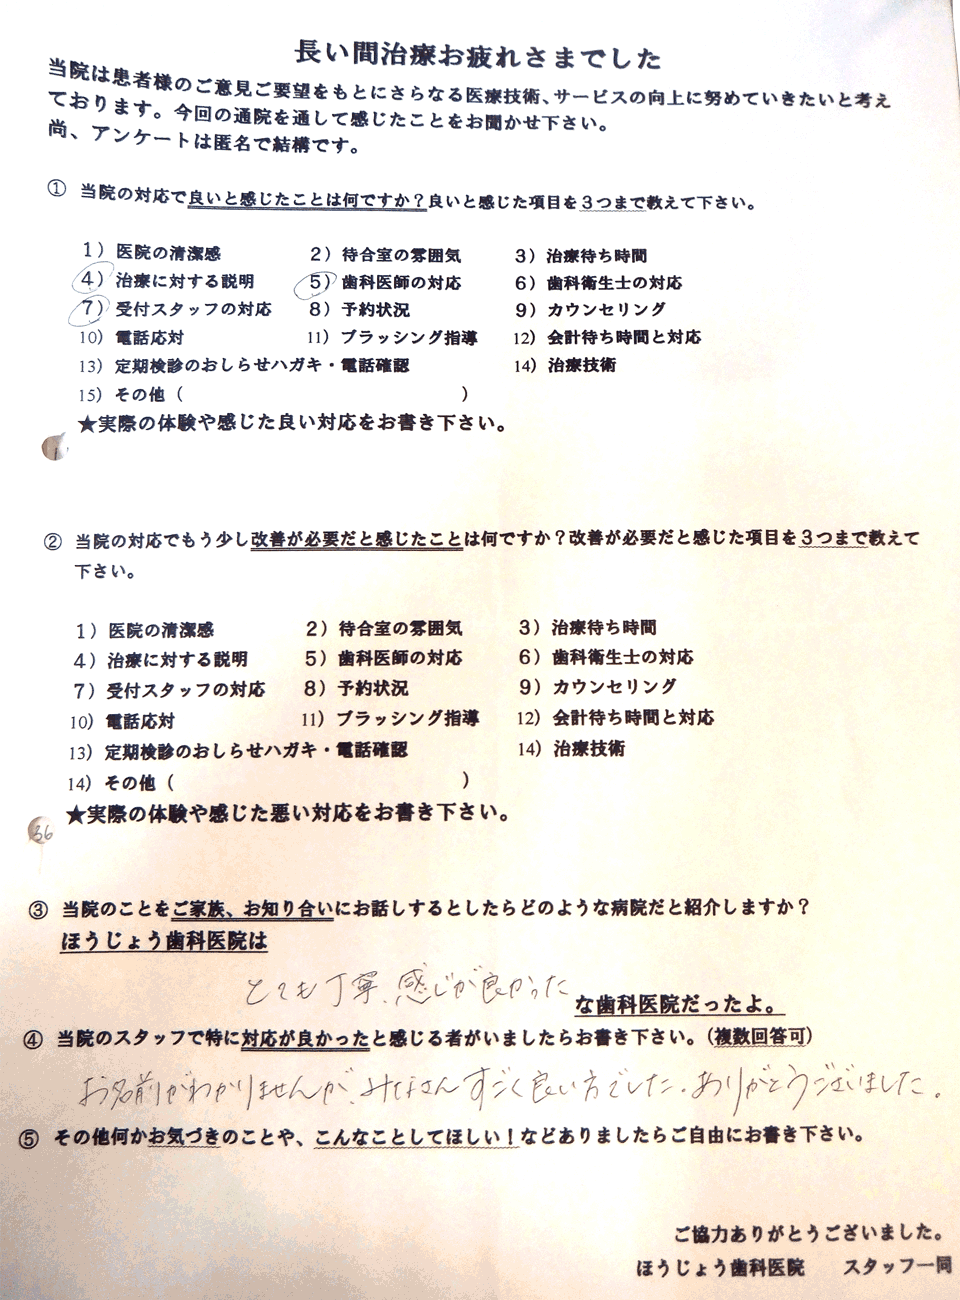 長い間治療お疲れさまでした
当院は患者様のご意見ご要望をもとにさらなる医療技術、サービスの向上に努めていきたいと考え
ております。今回の通院を通して感じたことをお聞かせ下さい。
尚、アンケートは匿名で結構です。
① 当院の対応で良いと感じたことは何ですか?良いと感じた項目を3つまで教えて下さい。
1）医院の清潔感 2）待合室の雰囲気 3）治療待ち時間
4）治療に対する説明 5）歯科医師の対応 6）歯科衛生士の対応
7）受付スタッフの対応 8）予約状況 9）カウンセリング
10）電話応対 11）ブラッシング指導 12）会計待ち時間と対応
13）定期検診のおしらせハガキ・電話確認 14）治療技術
15）その他（ ）
★実際の体験や感じた良い対応をお書き下さい。
② 当院の対応でもう少し改善が必要だと感じたことは何ですか?改善が必要だと感じた項目を3つまで教えて
下さい。
1）医院の清潔感 2）待合室の雰囲気 3）治療待ち時間
4）治療に対する説明 5）歯科医師の対応 6）歯科衛生士の対応
7）受付スタッフの対応 8）予約状況 9）カウンセリング
10）電話応対 11）ブラッシング指導 12）会計待ち時間と対応
13）定期検診のおしらせハガキ・電話確認 14）治療技術
14）その他（ ）
★実際の体験や感じた悪い対応をお書き下さい。
36
③ 当院のことをご家族、お知り合いにお話しするとしたらどのような病院だと紹介しますか?
ほうじょう歯科医院は
とても丁寧、感じが良かった
な歯科医院だったよ。
④ 当院のスタッフで特に対応が良かったと感じる者がいましたらお書き下さい。(複数回答可)
お名前がわかりませんが、みなさんすごく良い方でした。ありがとうございました。
⑤ その他何かお気づきのことや、こんなことしてほしい!などありましたらご自由にお書き下さい。
ご協力ありがとうございました。
ほうじょう歯科医院 スタッフ一同